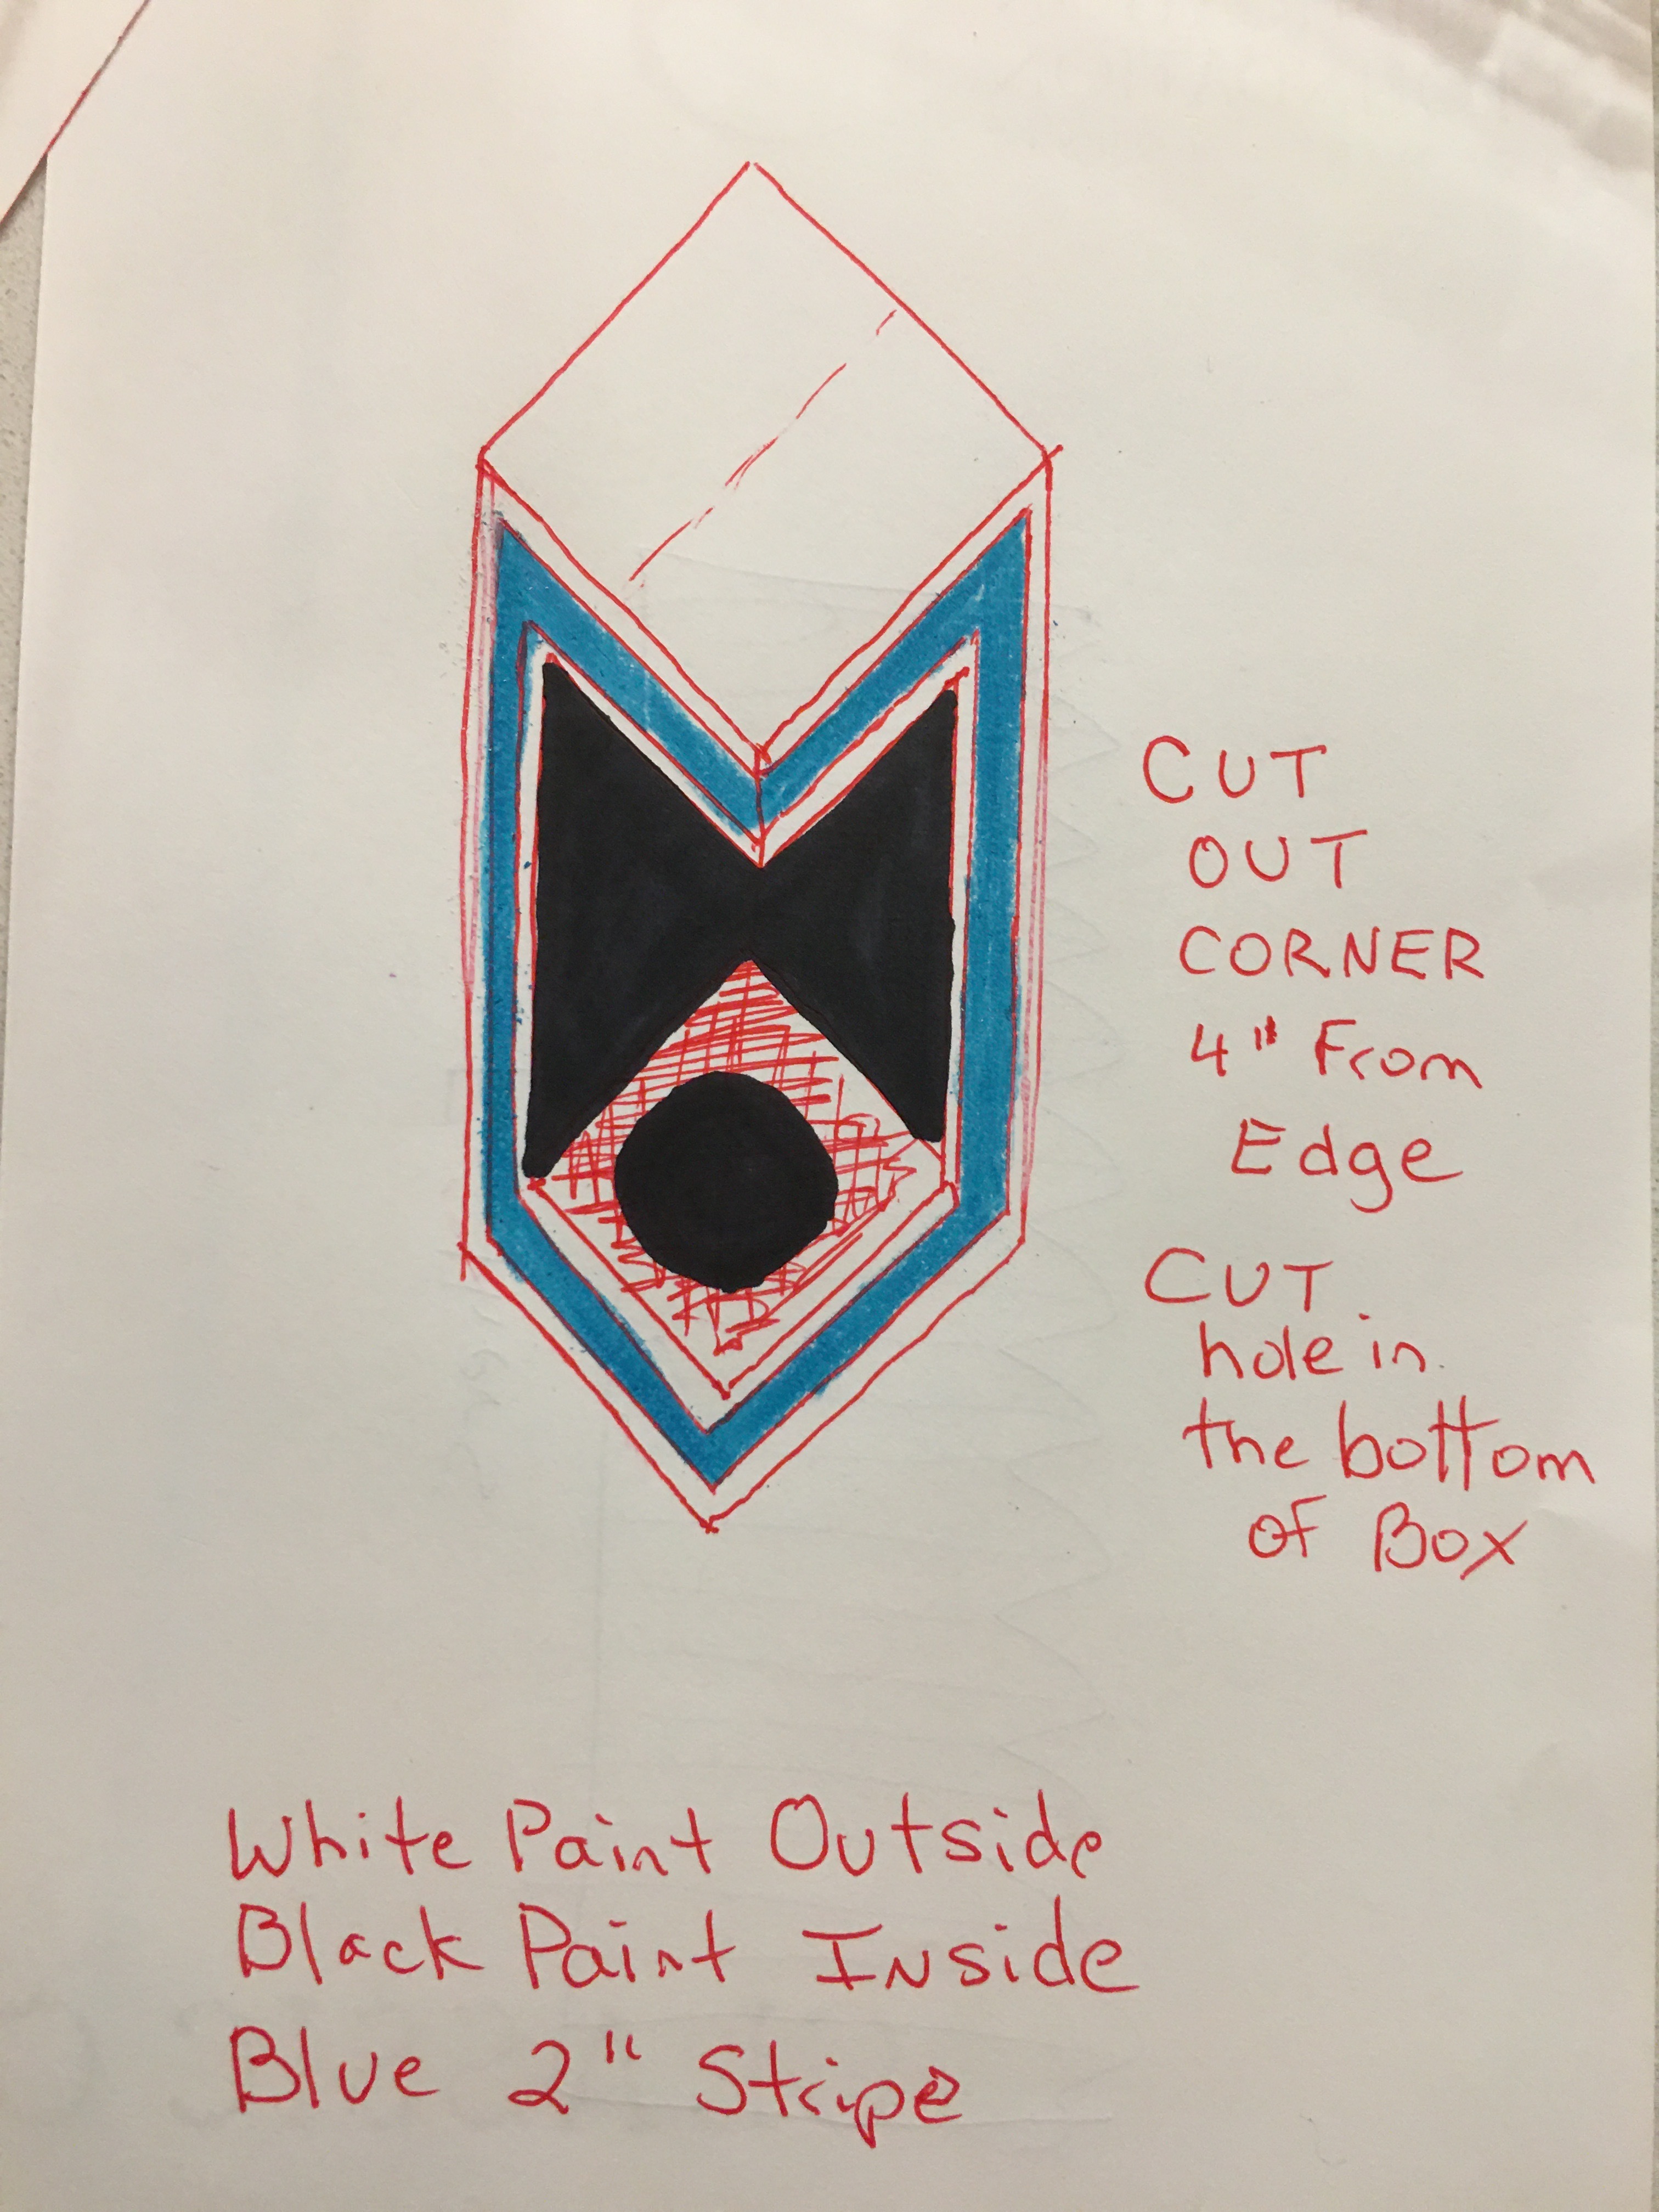 CUT
OUT
CORNER
4" From
Edge
CUT
hole in
the bottom
of Box
White Paint Outside
Black Paint Inside
Blue 2" Stripe